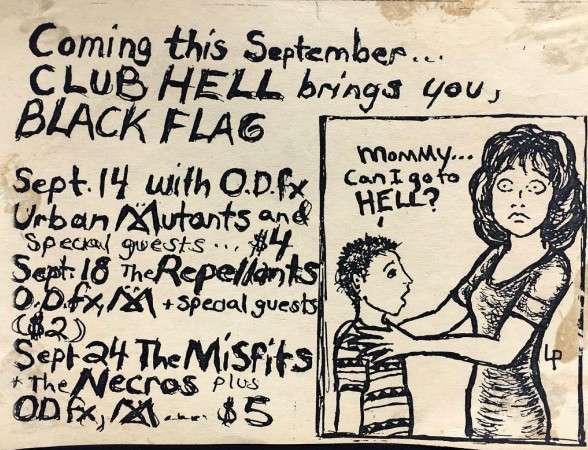 Coming this September...
CLUB HELL brings you,
BLACK FLAG
Sept. 14 with O.D.fx
Urban Mutants and
Special guests... $4
Sept. 18 The Repellants
O.D.fx, UM + special guests
($2)
Sept 24 The Misfits
+ the Necros plus
OD fx, UM .... $5
MOMMY...
Can I go to
HELL?
LP